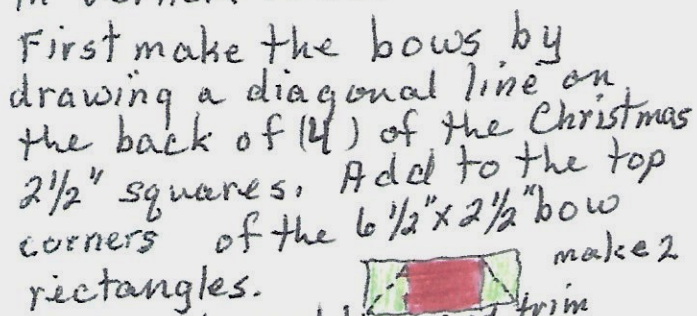 First make the bows by
drawing a diagonal line on
the back of (4) of the Christmas
2½" squares. Add to the top
corners of the 6½" x 2½" bow
rectangles. make 2
trim